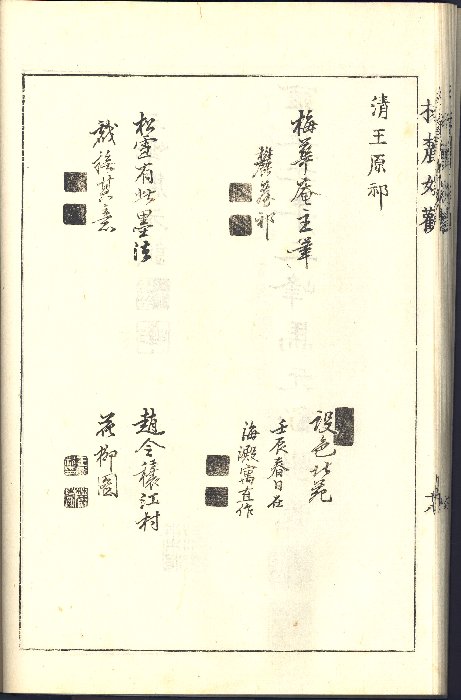 清王原祁
梅華庵主筆
麓臺祁
松雪有此墨法
戲彷其意
設色北苑
壬辰春日在
海澱寓直作
趙令穰江村
花柳圖